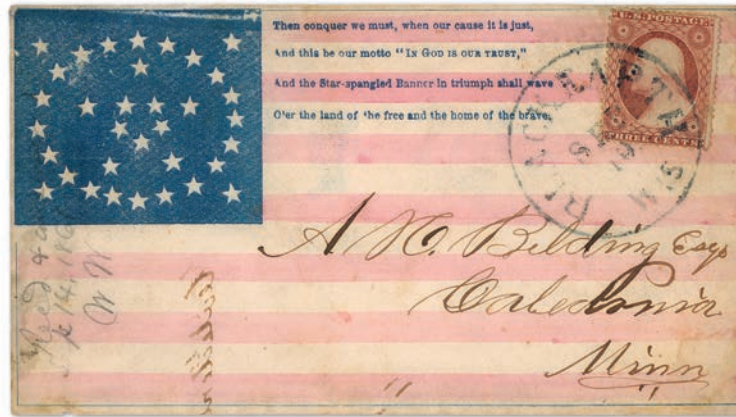 Then conquer we must, when our cause it is just,
And this be our motto “IN GOD IS OUR TRUST,”
And the Star-spangled Banner in triumph shall wave
O'er the land of the free and the home of the brave.
U.S. POSTAGE
THREE CENTS
BLACK EARTH
WIS
A. H. Belding Esqr
Caledonia
Minn
Rec'd